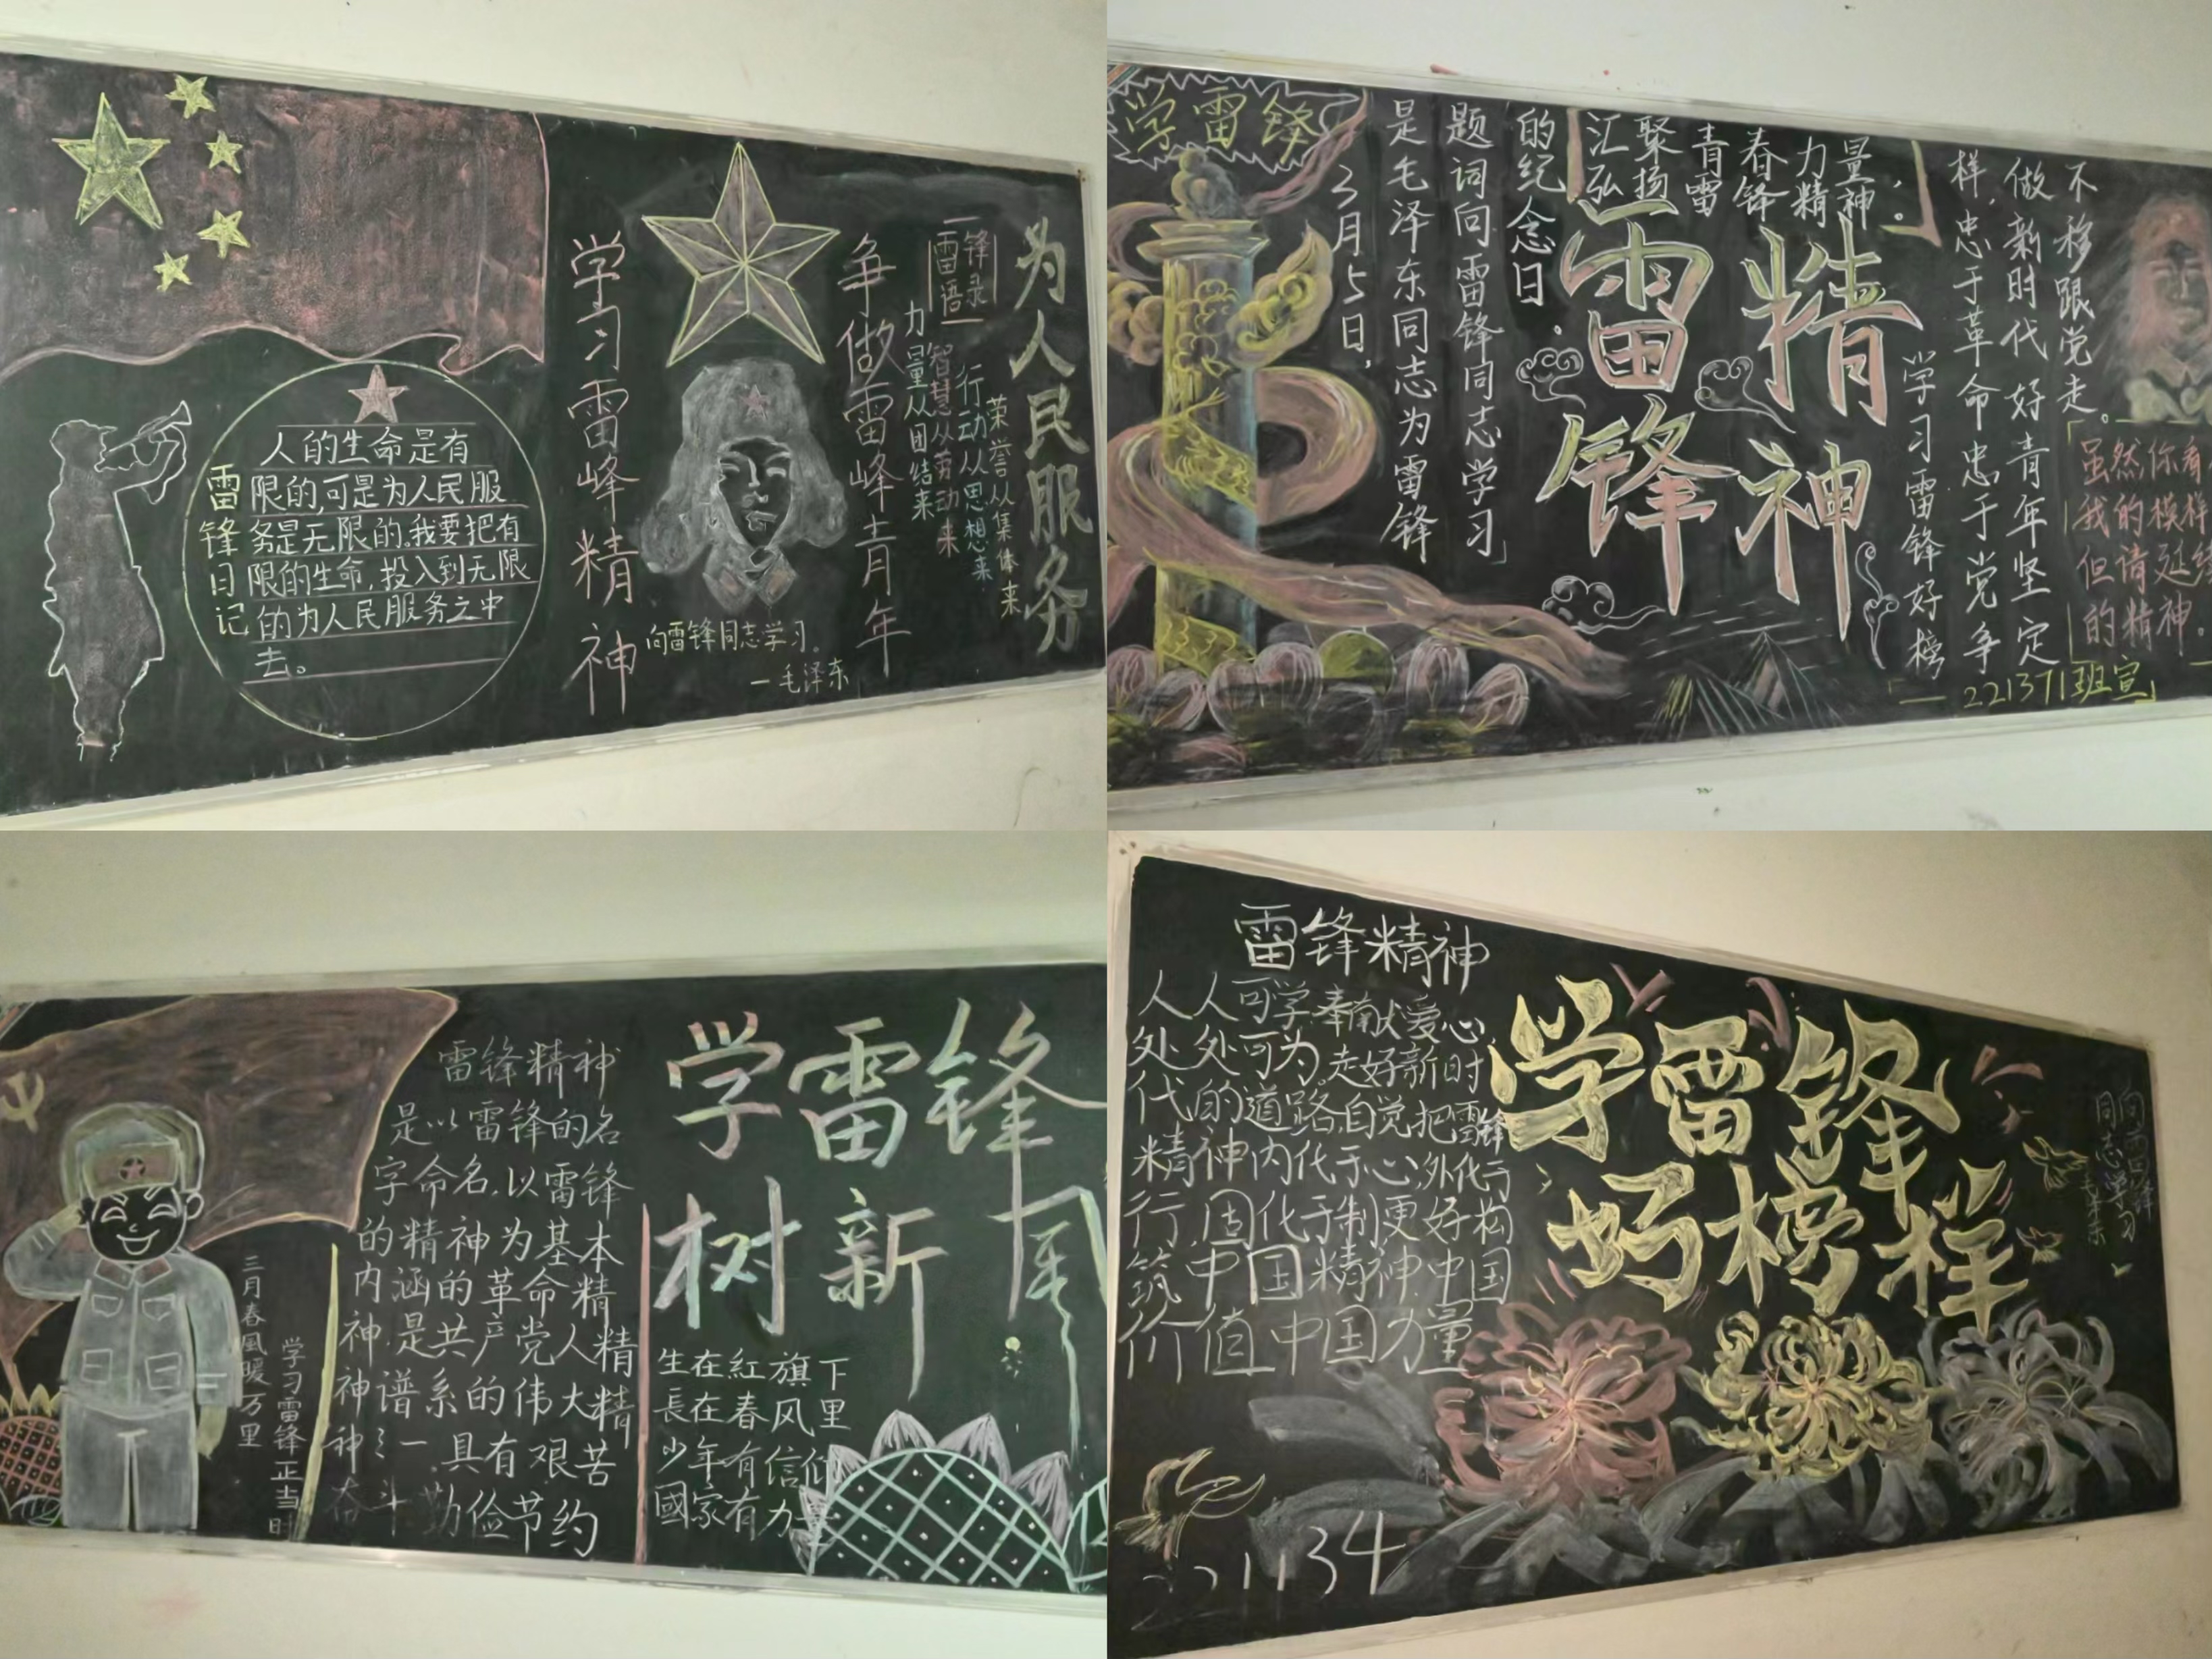 雷锋日记
人的生命是有
限的,可是为人民服
务是无限的。我要把有
限的生命,投入到无限
的为人民服务之中
去。
学习雷峰精神
争做雷峰青年
向雷锋同志学习。
一毛泽东
雷锋
语录
力量从团结来
智慧从劳动来
行动从思想来
荣誉从集体来
为人民服务
学雷锋
3月5日,
是毛泽东同志为雷锋
题词向雷锋同志学习」
的纪念日.
汇聚青春力量,
弘扬雷锋精神。
雷锋
精神
学习雷锋好榜
样,忠于革命忠于党争
做新时代好青年坚定
不移跟党走。
虽然你看
我的模样
但请延续
的精神。
221371班宣
三月春風暖万里
学习雷锋正当时
雷锋精神
是以雷锋的名
字命名,以雷锋
的精神为基本
内涵的革命精
神.是共产党人精
神谱系的伟大精
神之一.具有艰苦
奋斗.勤俭节约
学雷锋
树新风
生在紅旗下
長在春风里
少年有信仰
國家有力量
雷锋精神
人人可学.奉献爱心,
处处可为.走好新时
代的道路,自觉把雷锋
精神内化于心,外化于
行,固化于制更好构
筑中国精神.中国
价值中国力量
学雷锋
好榜样
向雷锋
同志学习
毛泽东
221134